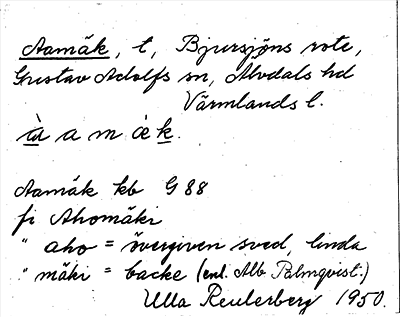 Aamäk, t, Bjursjöns rote,
Gustav Adolfs sn, Älvdals hd
Värmlands l.
à a m æ k.
Aamäk kb G 88
fi Ahomäki
" aho = övergiven sved, linda
" mäki = backe (enl. Alb Palmqvist.)
Ulla Reulerberg 1950.